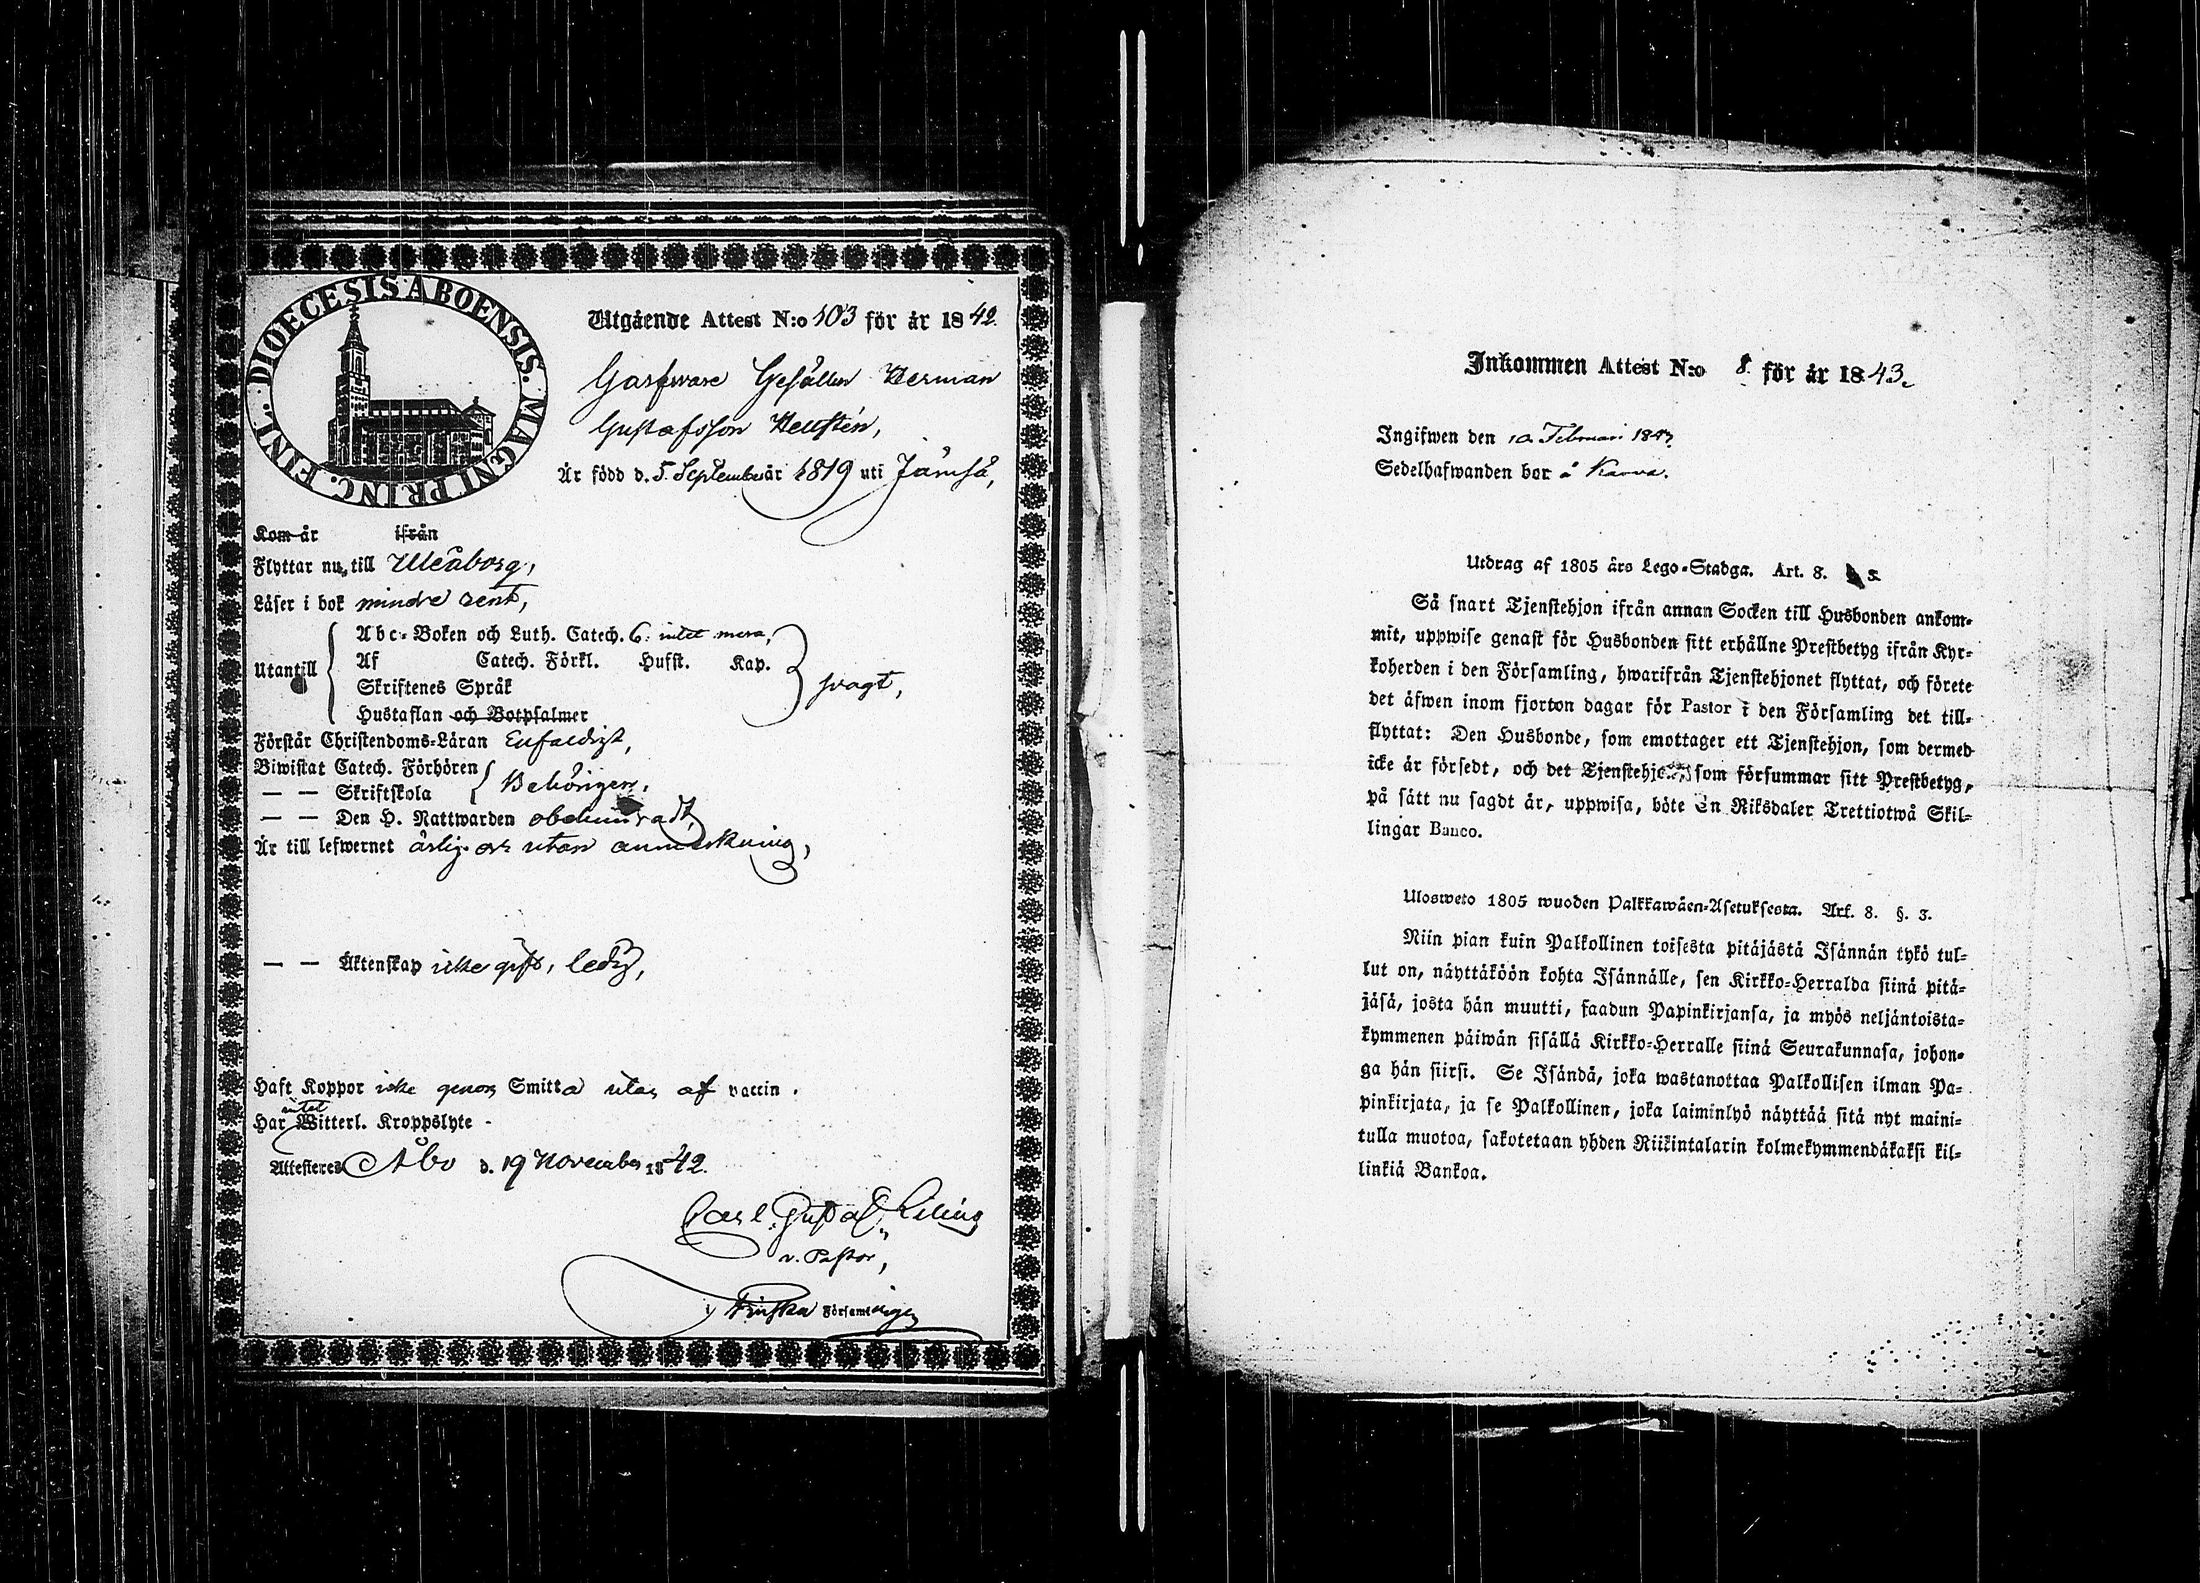 DIOECESIS ABOENSIS. MAGNI PRINC. FINL.
Utgående Attest N:o 103 för år 1842.
Garfware Gesällen Herman
Gustafsson Hellstén,
Är född d. 5 September år 1819 uti Jämsä,
Kom år ifrån
Flyttar nu till Uleåborg,
Läser i bok mindre rent,
Utantill
Abc-Boken och Luth. Catech. 6. intet mera,
Af Catech. Förkl. Husst. Kap.
Skriftenes Språk
Hustaflan och Botpsalmer
svagt,
Förstår Christendoms-Läran Enfaldigt,
Biwistat Catech. Förhören
— — Skriftskola
Behörigen,
— — Den H. Nattwarden obehindradt,
Är till lefwernet ärlig och utan anmärkning,
— — Äktenskap icke gift, ledig,
Haft Koppor icke genom Smitta utan af vaccin.
Har intet Witterl. Kroppslyte -
Attesteres Åbo d. 19 November 1842.
Carl Gustaf
v. Pastor,
i Finska Församlingen
Inkommen Attest N:o 8 för år 1843.
Ingifwen den 10 Februari 1843
Sedelhafwanden bor å
Utdrag af 1805 års Lego-Stadga. Art. 8. § 3.
Så snart Tjenstehjon ifrån annan Socken till Husbonden ankom-
mit, uppwise genast för Husbonden sitt erhållne Prestbetyg ifrån Kyr-
koherden i den Församling, hwarifrån Tjenstehjonet flyttat, och förete
det äfwen inom fjorton dagar för Pastor i den Församling det till-
flyttat: Den Husbonde, som emottager ett Tjenstehjon, som dermed
icke är försedt, och det Tjenstehjon, som försummar sitt Prestbetyg,
på sätt nu sagdt är, uppwisa, böte En Riksdaler Trettiotwå Skil-
lingar Banco.
Ulosweto 1805 wuoden Palkkawäen-Asetuksesta. Art. 8. §. 3.
Niin pian kuin Palkollinen toisesta pitäjästä Isännän tykö tul-
lut on, näyttäköön kohta Isännälle, sen Kirkko-Herralda siinä pitä-
jäsä, josta hän muutti, saadun Papinkirjansa, ja myös neljäntoista-
kymmenen päiwän sisällä Kirkko-Herralle siinä Seurakunnasa, johon-
ga hän siirsi. Se Isändä, joka wastanottaa Palkollisen ilman Pa-
pinkirjata, ja se Palkollinen, joka laiminlyö näyttää sitä nyt maini-
tulla muotoa, sakotetaan yhden Riikintalarin kolmekymmendäkaksi kil-
linkiä Bankoa.